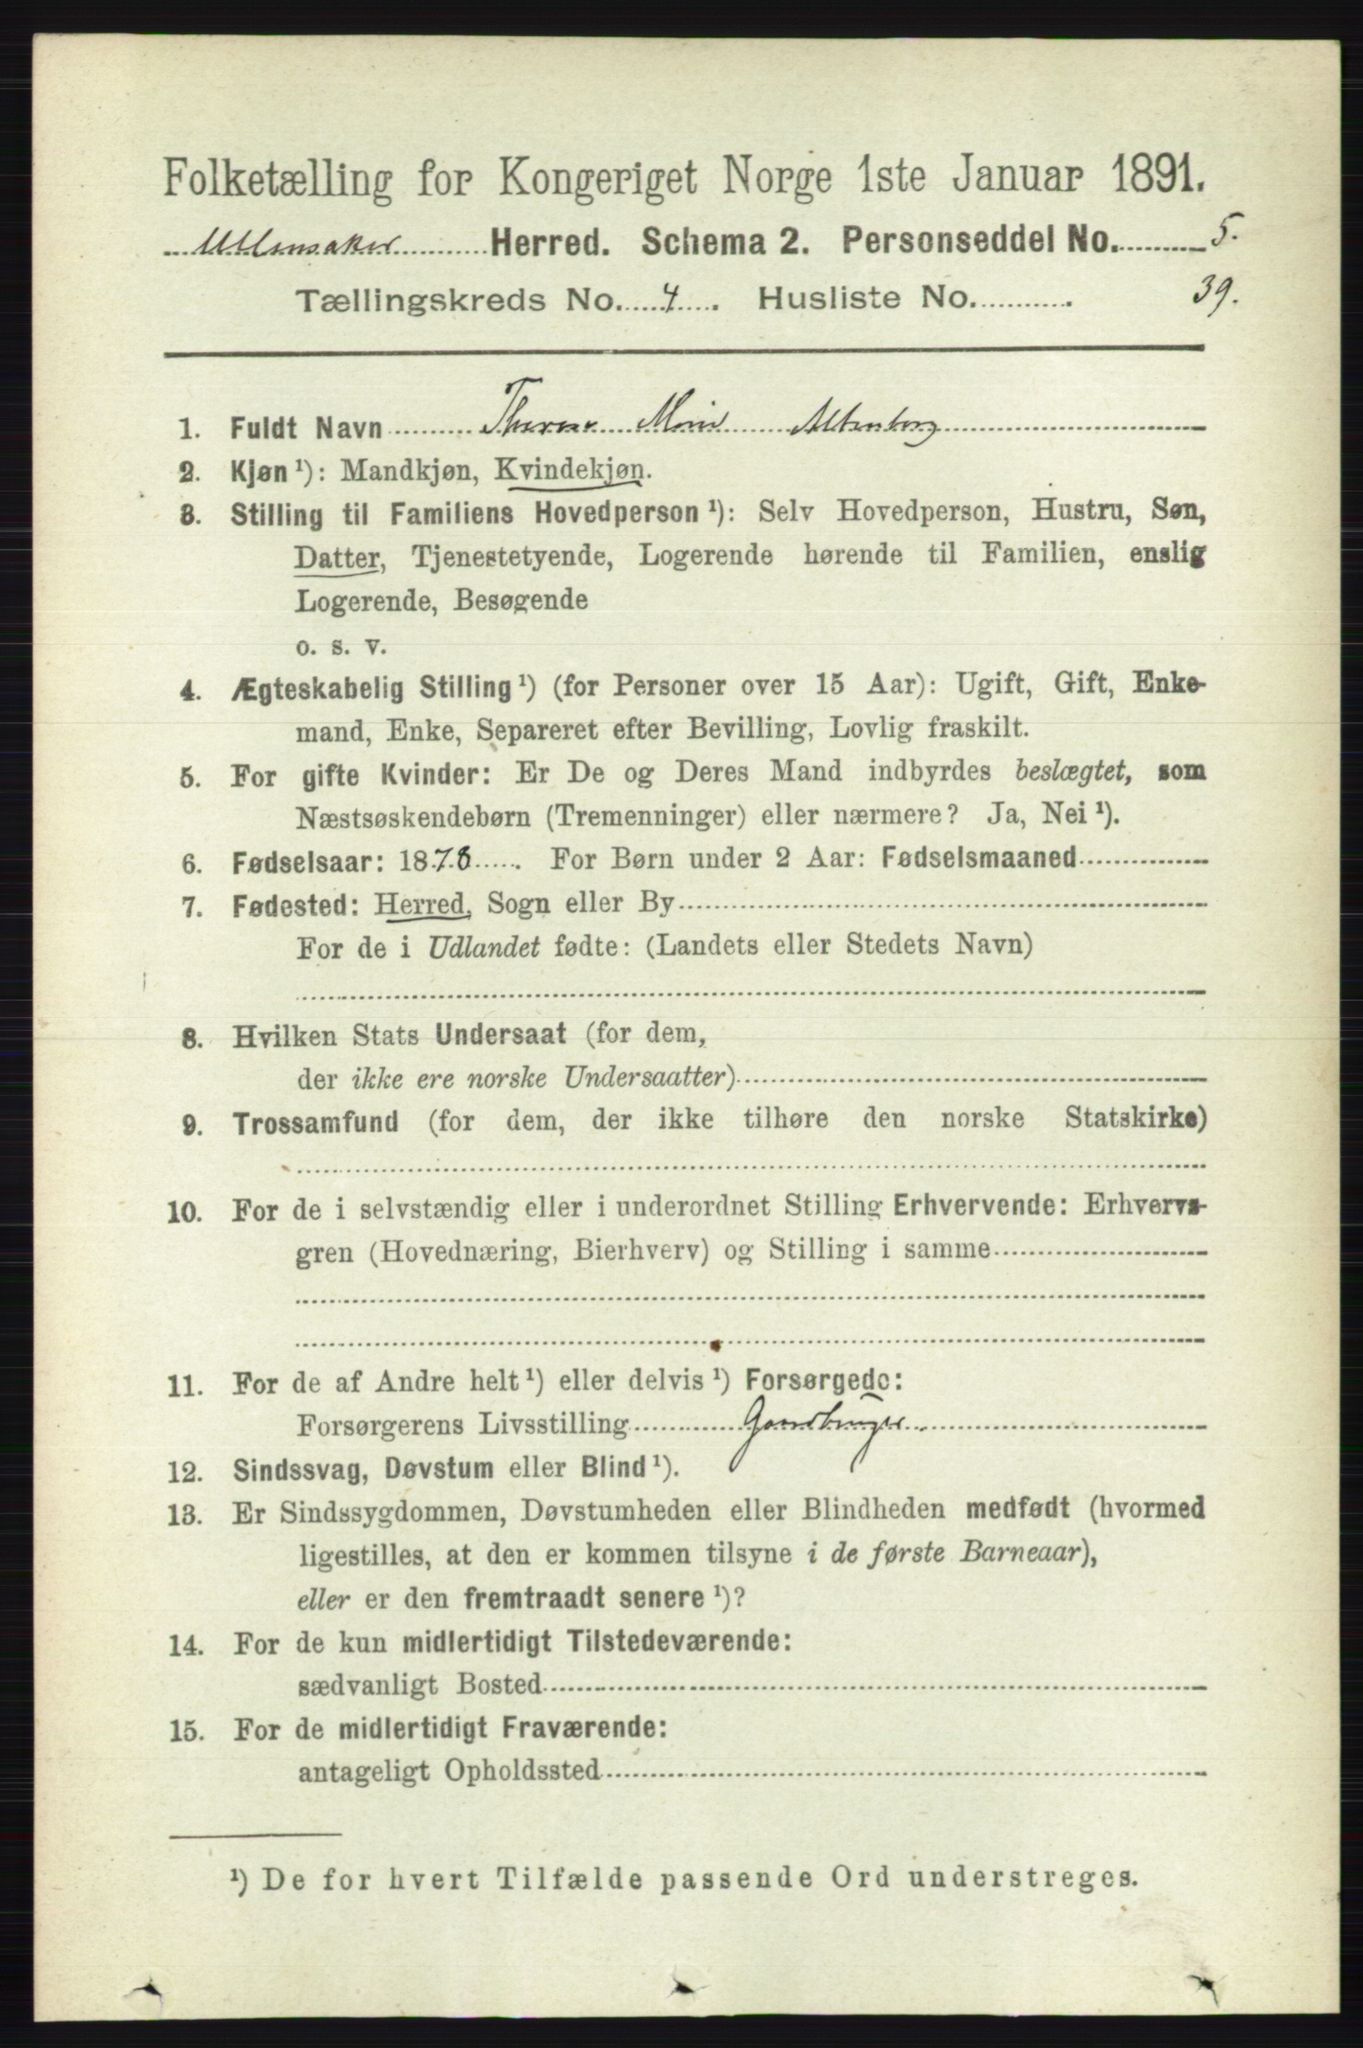 Folketælling for Kongeriget Norge 1ste Januar 1891.
Ullensaker Herred. Schema 2. Personseddel No. 5.
Tællingskreds No. 4. Husliste No. 39.
1. Fuldt Navn Therese Marie Altenborg
2. Kjøn ¹): Mandkjøn, Kvindekjøn.
3. Stilling til Familiens Hovedperson ¹): Selv Hovedperson, Hustru, Søn,
Datter, Tjenestetyende, Logerende hørende til Familien, enslig
Logerende, Besøgende
o. s. v.
4. Ægteskabelig Stilling ¹) (for Personer over 15 Aar): Ugift, Gift, Enke-
mand, Enke, Separeret efter Bevilling, Lovlig fraskilt.
5. For gifte Kvinder: Er De og Deres Mand indbyrdes beslægtet, som
Næstsøskendebørn (Tremenninger) eller nærmere? Ja, Nei ¹).
6. Fødselsaar: 1878. For Børn under 2 Aar: Fødselsmaaned
7. Fødested: Herred, Sogn eller By
For de i Udlandet fødte: (Landets eller Stedets Navn)
8. Hvilken Stats Undersaat (for dem,
der ikke ere norske Undersaatter)
9. Trossamfund (for dem, der ikke tilhøre den norske Statskirke)
10. For de i selvstændig eller i underordnet Stilling Erhvervende: Erhvervs-
gren (Hovednæring, Bierhverv) og Stilling i samme
11. For de af Andre helt ¹) eller delvis ¹) Forsørgede:
Forsørgerens Livsstilling Gaardbruger.
12. Sindssvag, Døvstum eller Blind ¹).
13. Er Sindssygdommen, Døvstumheden eller Blindheden medfødt (hvormed
ligestilles, at den er kommen tilsyne i de første Barneaar),
eller er den fremtraadt senere ¹)?
14. For de kun midlertidigt Tilstedeværende:
sædvanligt Bosted
15. For de midlertidigt Fraværende:
antageligt Opholdssted
¹) De for hvert Tilfælde passende Ord understreges.